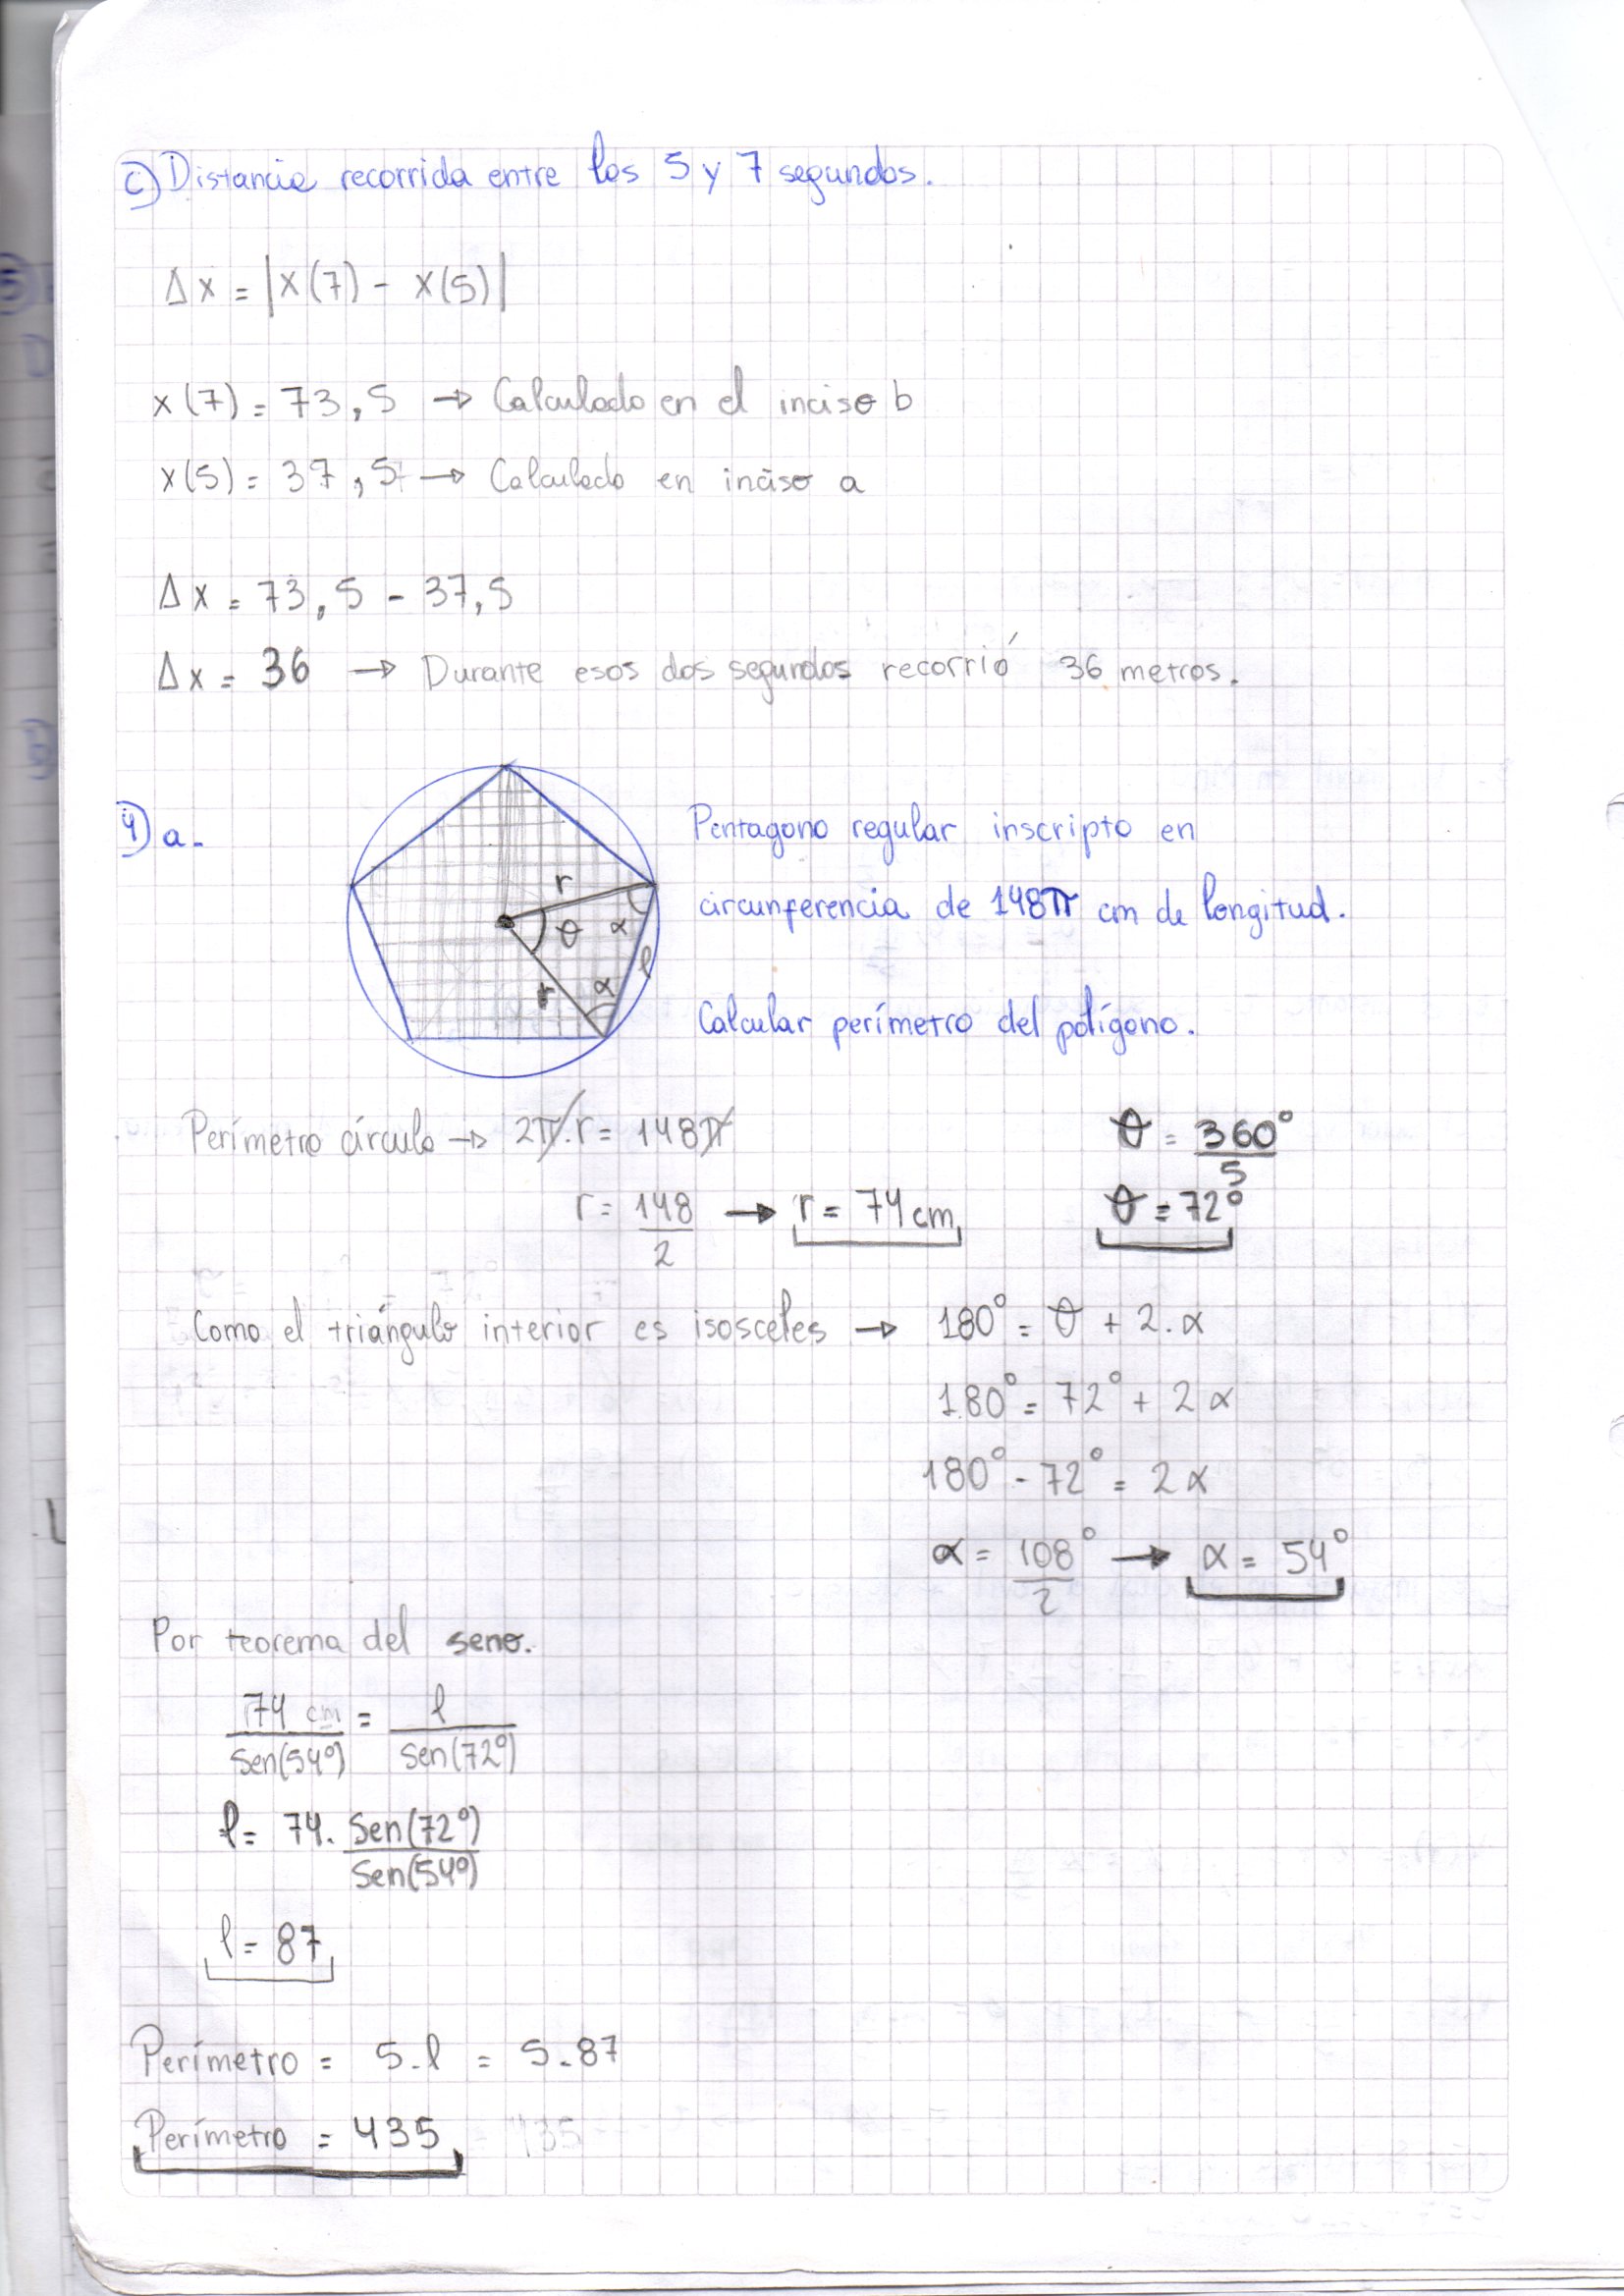 c) Distancia recorrida entre los 5 y 7 segundos.
Δx = |x(7) - x(5)|
x(7) = 73,5 → Calculado en el inciso b
x(5) = 37,5 → Calculado en inciso a
Δx = 73,5 - 37,5
Δx = 36 → Durante esos dos segundos recorrió 36 metros.
4) a-
r
θ
α
l
α
r
Pentagono regular inscripto en
circunferencia de 148π cm de longitud.
Calcular perímetro del polígono.
Perímetro círculo → 2π.r = 148π
θ = 360°/5
r = 148/2 → r = 74 cm
θ = 72°
Como el triángulo interior es isosceles → 180° = θ + 2.α
180° = 72° + 2α
180° - 72° = 2α
α = 108°/2 → α = 54°
Por teorema del seno.
74 cm/Sen(54°) = l/Sen(72°)
l = 74. Sen(72°)/Sen(54°)
l = 87
Perímetro = 5.l = 5.87
Perímetro = 435 = 435